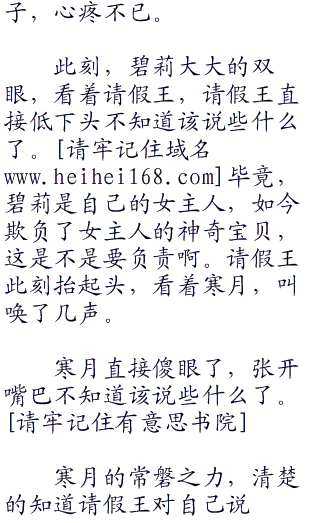 子，心疼不已。
此刻，碧莉大大的双
眼，看着请假王，请假王直
接低下头不知道该说些什么
了。[请牢记住域名
www.heihei168.com]毕竟，
碧莉是自己的女主人，如今
欺负了女主人的神奇宝贝，
这是不是要负责啊。请假王
此刻抬起头，看着寒月，叫
唤了几声。
寒月直接傻眼了，张开
嘴巴不知道该说些什么了。
[请牢记住有意思书院]
寒月的常磐之力，清楚
的知道请假王对自己说